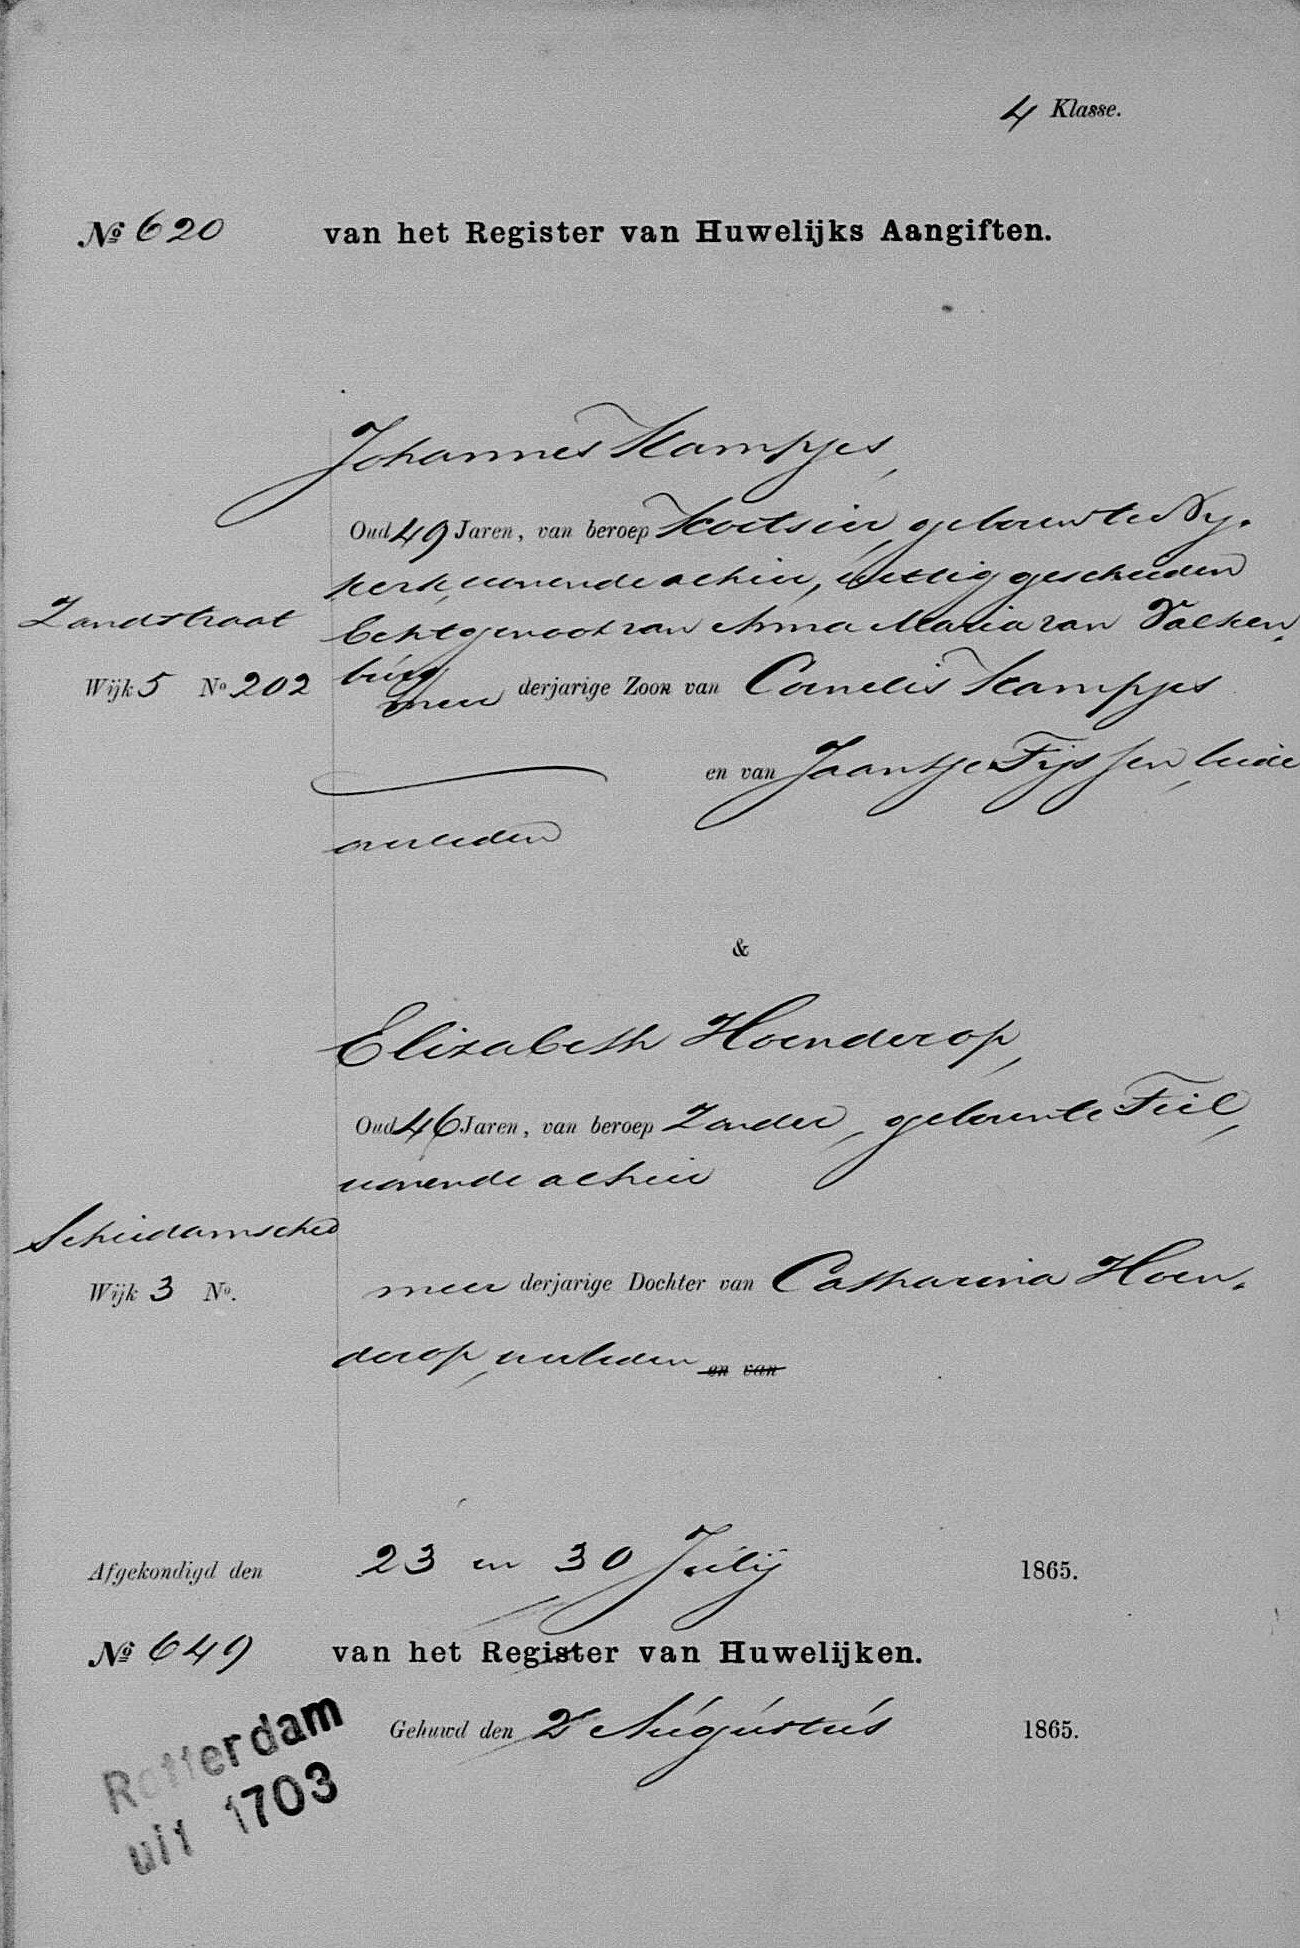 4 Klasse.
No 620 van het Register van Huwelijks Aangiften.
Johannes Kampjes,
Oud 49 Jaren, van beroep Koetsier, geboren te Ny-
kerk, wonende alhier, wettig gescheiden
Zandstraat Echtgenoot van Anna Maria van Valken-
burg
Wijk 5 No 202 meer derjarige Zoon van Cornelis Kampjes
en van Jaantje Fijssen, beide
overleden
&
Elizabeth Hoenderop,
Oud 46 Jaren, van beroep Zonder, geboren te Tiel,
wonende alhier
Schiedamsched
Wijk 3 No. meer derjarige Dochter van Catharina Hoen-
derop, overleden en van
Afgekondigd den 23 en 30 Julij 1865.
No 649 van het Register van Huwelijken.
Gehuwd den 2 Augustus 1865.
Rotterdam
uit 1703